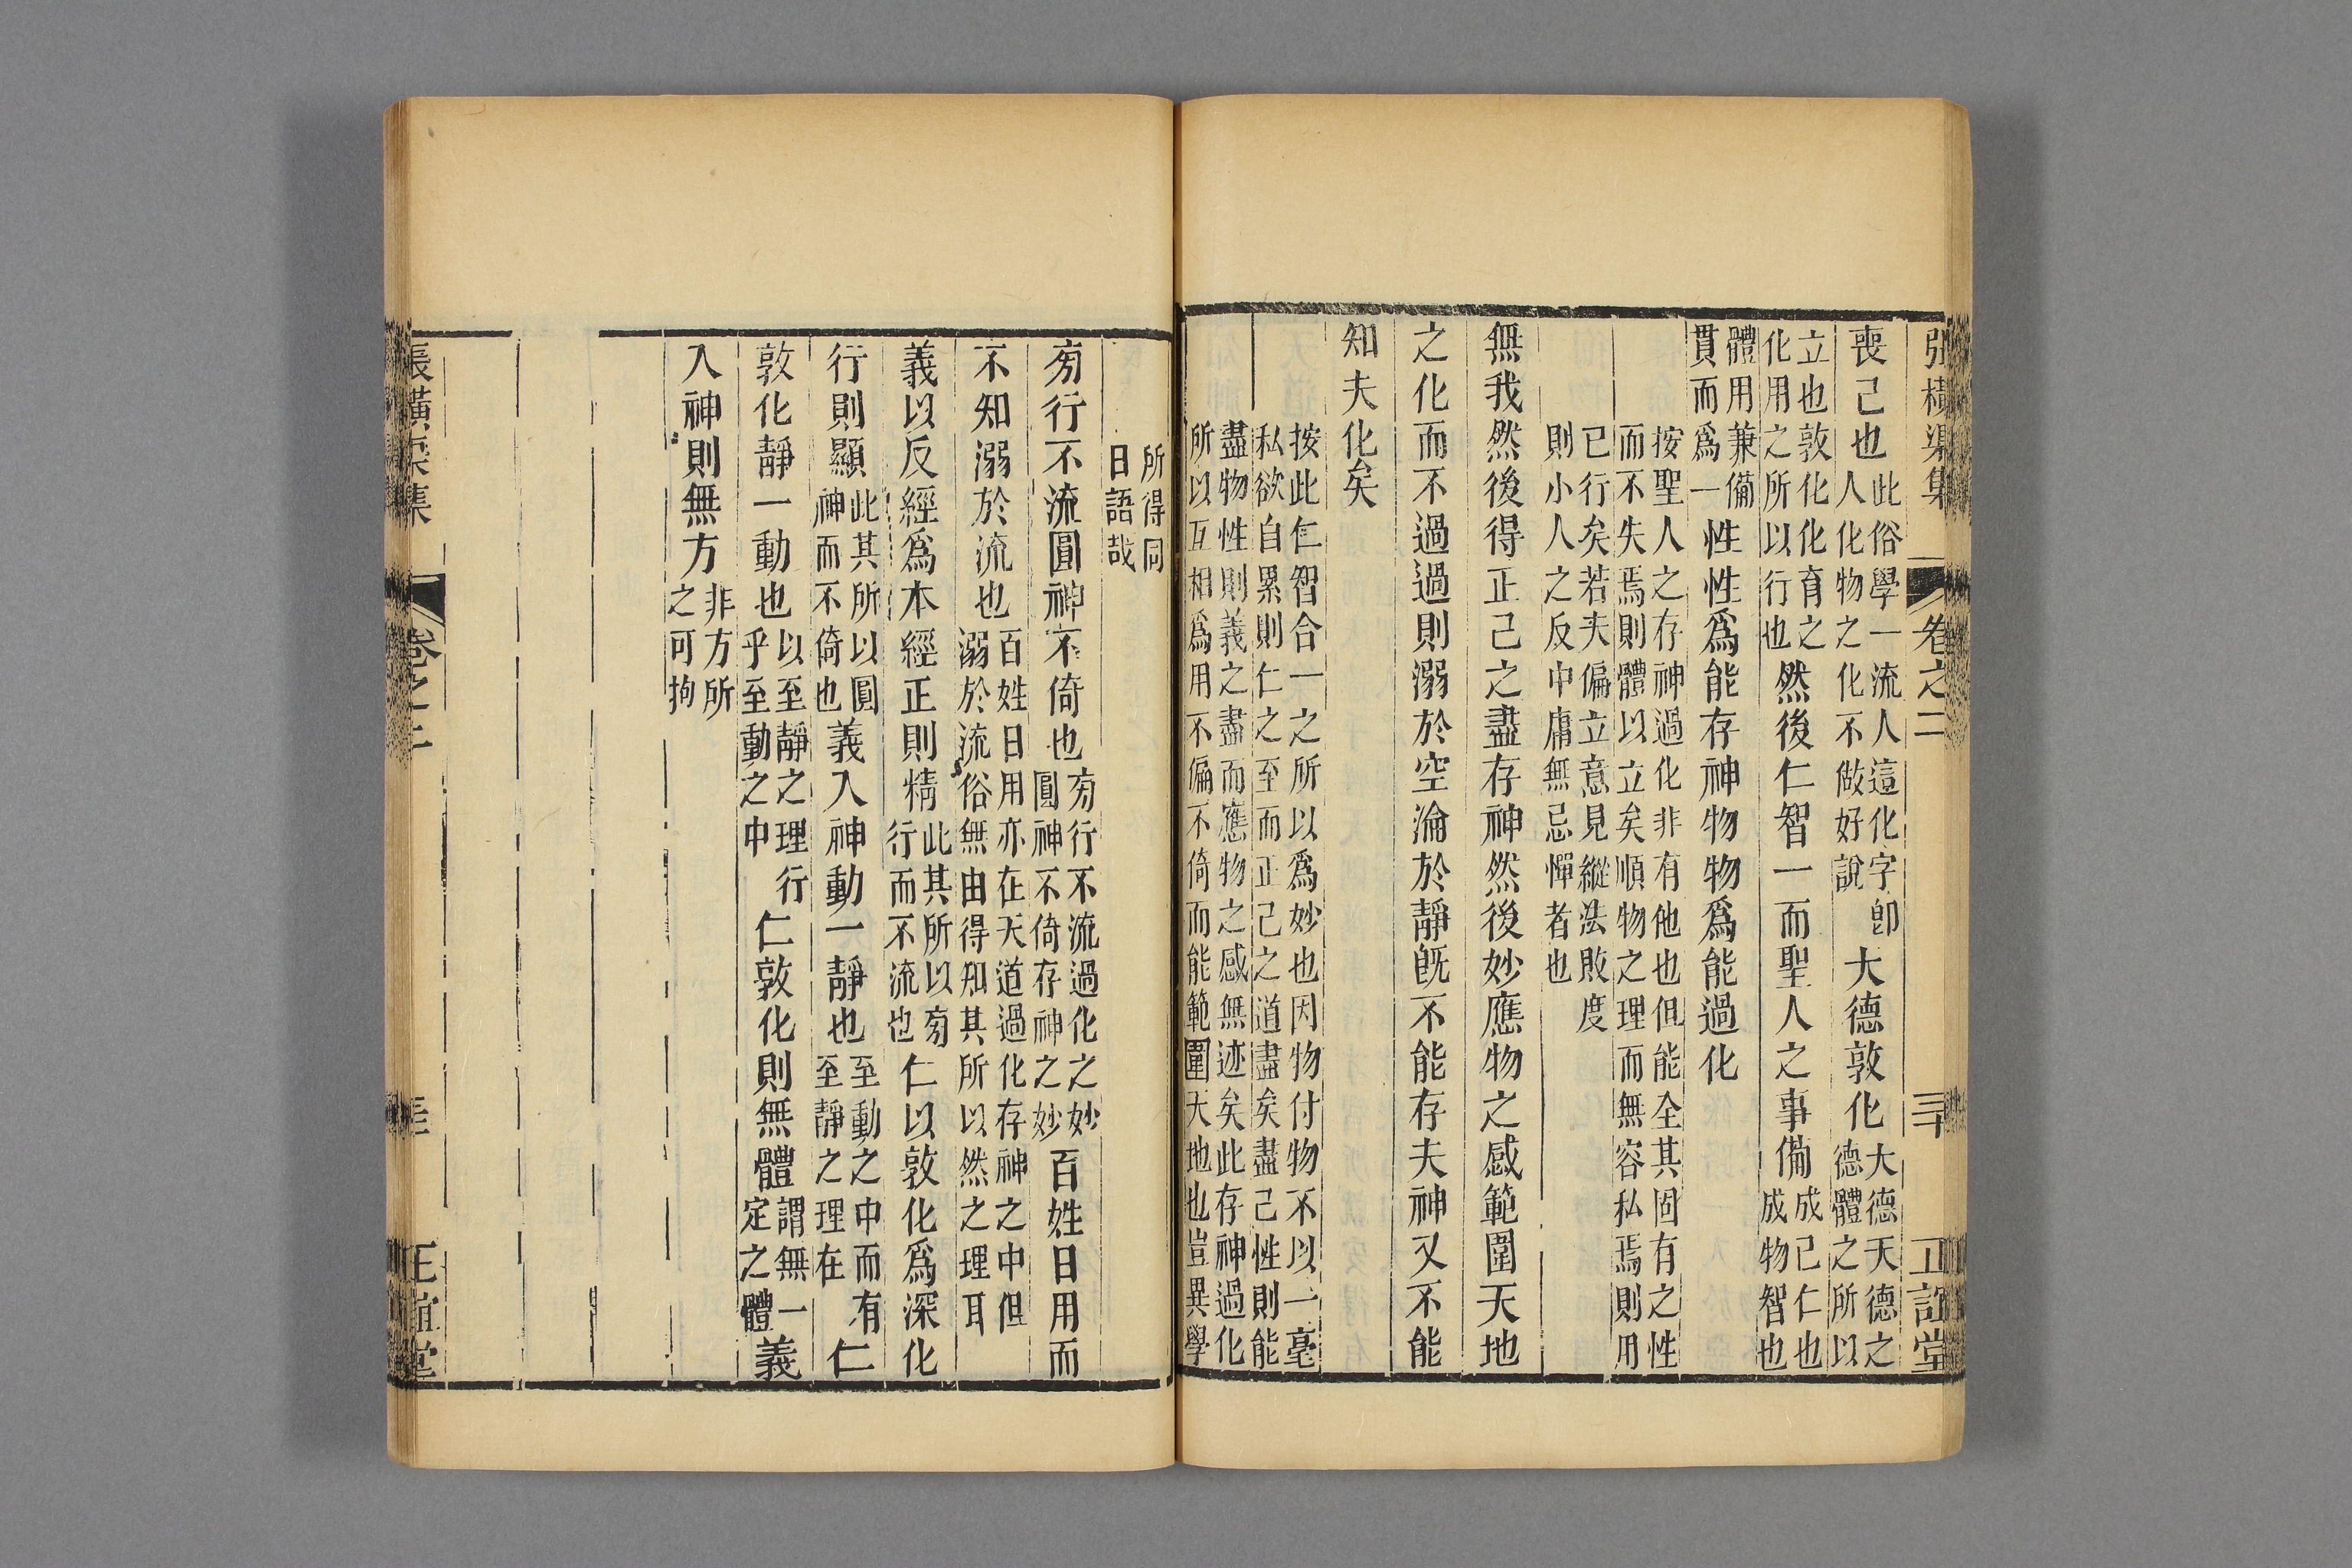 張橫渠集 卷之二 三十 正誼堂
喪己也此俗學一流人這化字卽人化物之化不做好說大德敦化大德天德之德體之所以
立也敦化化育之化用之所以行也然後仁智一而聖人之事備成己仁也成物智也
體用兼備貫而爲一性性爲能存神物物爲能過化
按聖人之存神過化非有他也但能全其固有之性
而不失焉則體以立矣順物之理而無容私焉則用
已行矣若夫偏立意見縱法敗度
則小人之反中庸無忌憚者也
無我然後得正己之盡存神然後妙應物之感範圍天地
之化而不過過則溺於空淪於靜旣不能存夫神又不能
知夫化矣
按此仁智合一之所以爲妙也因物付物不以一毫
私欲自累則仁之至而正己之道盡矣盡己性則能
盡物性則義之盡而應物之感無迹矣此存神過化
所以互相爲用不偏不倚而能範圍天地也豈異學
所得同
日語哉
旁行不流圓神不倚也旁行不流過化之妙圓神不倚存神之妙百姓日用而
不知溺於流也百姓日用亦在天道過化存神之中但溺於流俗無由得知其所以然之理耳
義以反經爲本經正則精此其所以旁行而不流也仁以敦化爲深化
行則顯此其所以圓神而不倚也義入神動一靜也至動之中而有至靜之理在仁
敦化靜一動也以至靜之理行乎至動之中仁敦化則無體謂無一定之體義
入神則無方非方所之可拘
張橫渠集 卷之二 正誼堂